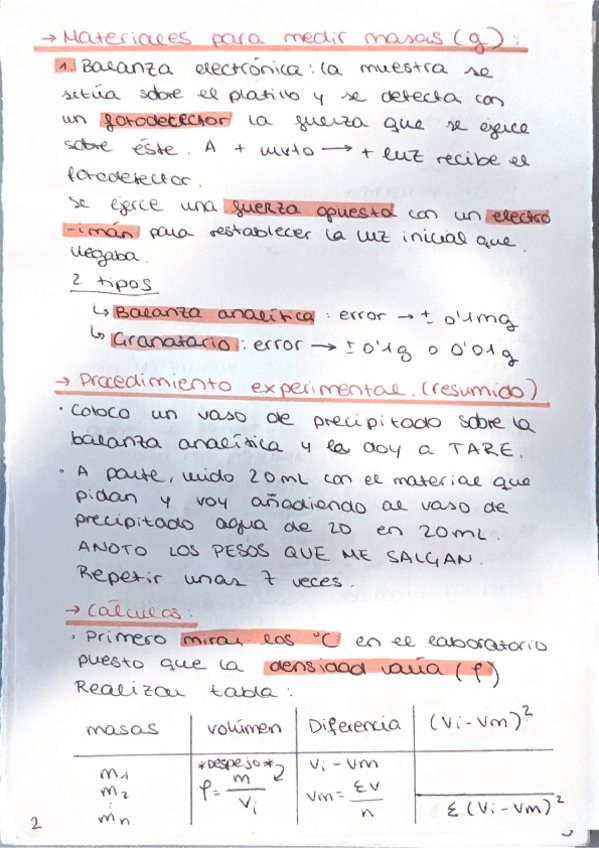 → Materiales para medir masas (g):
1. Balanza electrónica: la muestra se
sitúa sobre el platillo y se detecta con
un fotodetector la fuerza que se ejerce
sobre éste. A + mvto → + luz recibe el
fotodetector.
Se ejerce una fuerza opuesta con un electro
-imán para restablecer la luz inicial que
llegaba.
2 tipos
↳ Balanza analítica: error → ± 0'1mg
↳ Granatario: error → ± 0'1g o 0'01g
→ Procedimiento experimental. (resumido)
· Coloco un vaso de precipitado sobre la
balanza analítica y la doy a TARE.
· A parte, mido 20mL con el material que
pidan y voy añadiendo al vaso de
precipitado agua de 20 en 20mL.
ANOTO LOS PESOS QUE ME SALGAN.
Repetir unas 7 veces.
→ Cálculos:
· Primero miran los °C en el laboratorio
puesto que la densidad varía (ρ)
Realizar tabla:
masas | volúmen | Diferencia | (Vi-Vm)²
m1 *Despejo* Vi - Vm
m2 ρ = m/Vi Vm = ΣV/n
⋮
mn Σ(Vi-Vm)²
2